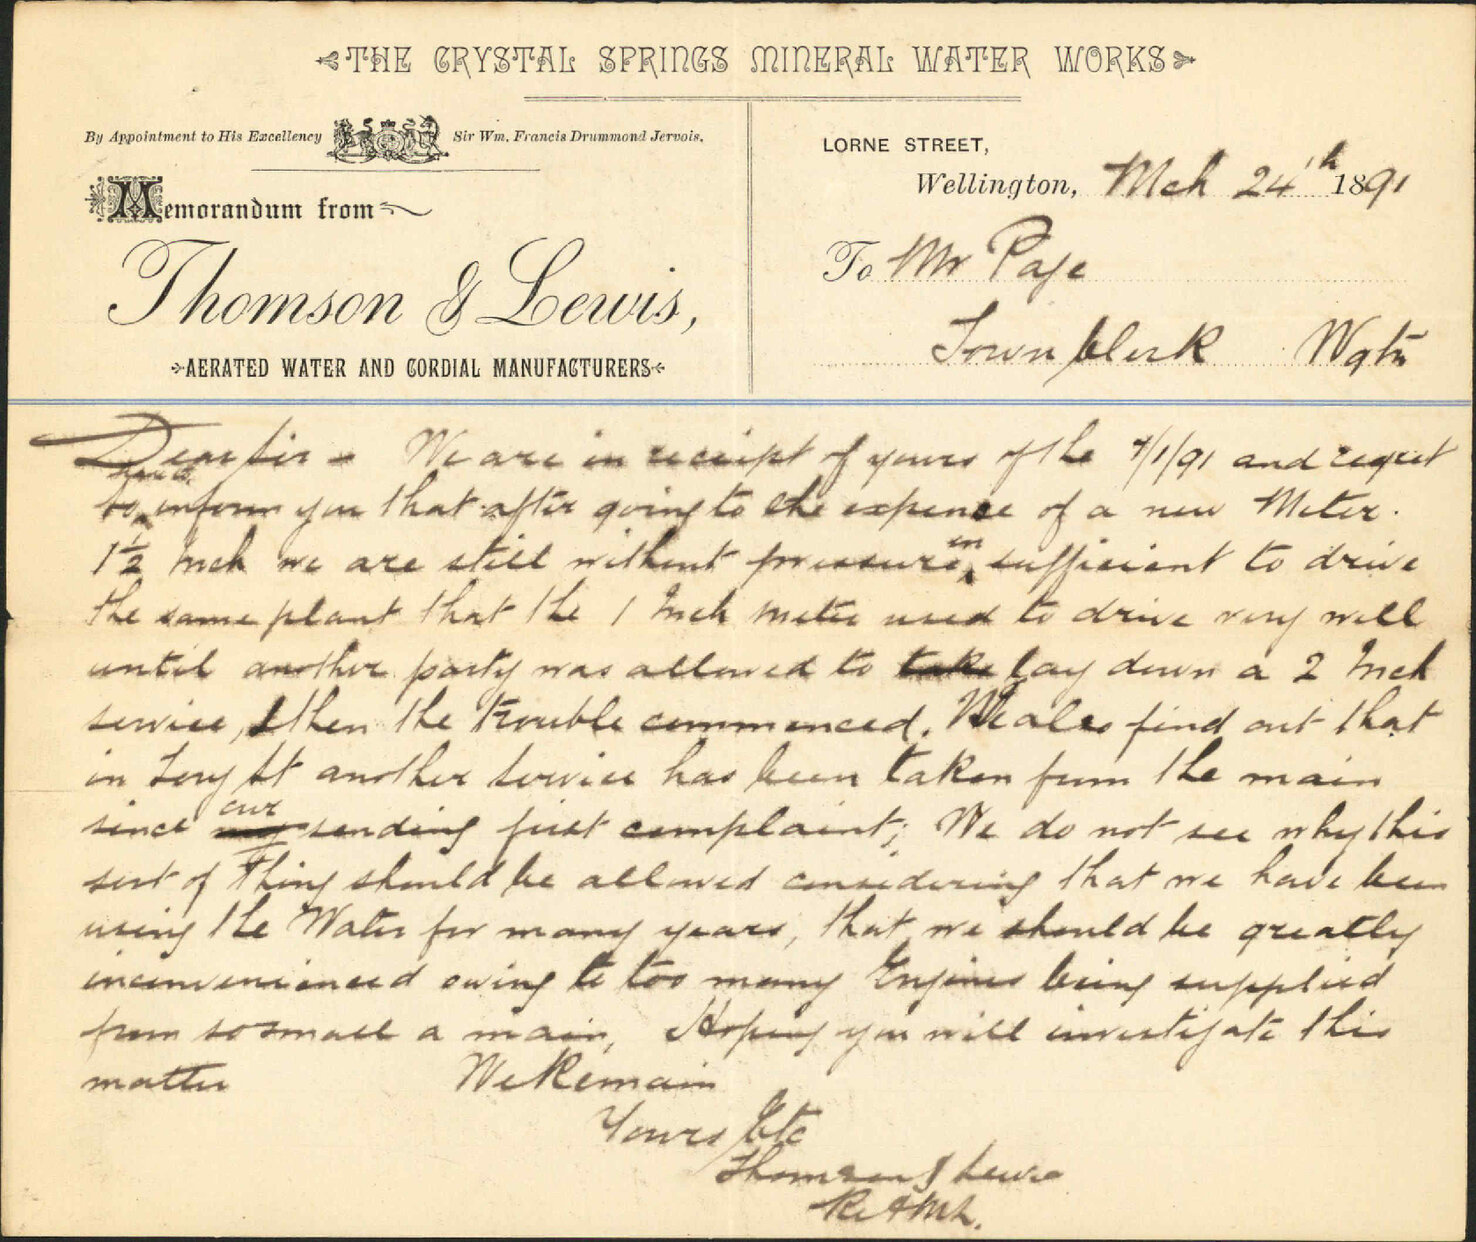 THE CRYSTAL SPRINGS MINERAL WATER WORKS
By Appointment to His Excellency Sir Wm. Francis Drummond Jervois.
Memorandum from
Thomson & Lewis,
AERATED WATER AND CORDIAL MANUFACTURERS
LORNE STREET,
Wellington, Mch 24th 1891
To Mr Page
Town Clerk Wgtn
Dear Sir - We are in receipt of yours of the 7/1/91 and regret
to inform you that after going to the expence of a new Meter.
1½ Inch we are still without pressure in sufficient to drive
the same plant that the 1 Inch meter used to drive very well
until another party was allowed to take lay down a 2 Inch
service, & then the trouble commenced. We also find out that
in Tory St another service has been taken from the main
since our sending first complaint; We do not see why this
sort of thing should be allowed considering that we have been
using the Water for many years, that we should be greatly
inconvenienced owing to too many Engines being supplied
from so small a main, Hoping you will investigate this
matter We Remain
Yours Etc
Thomson & Lewis